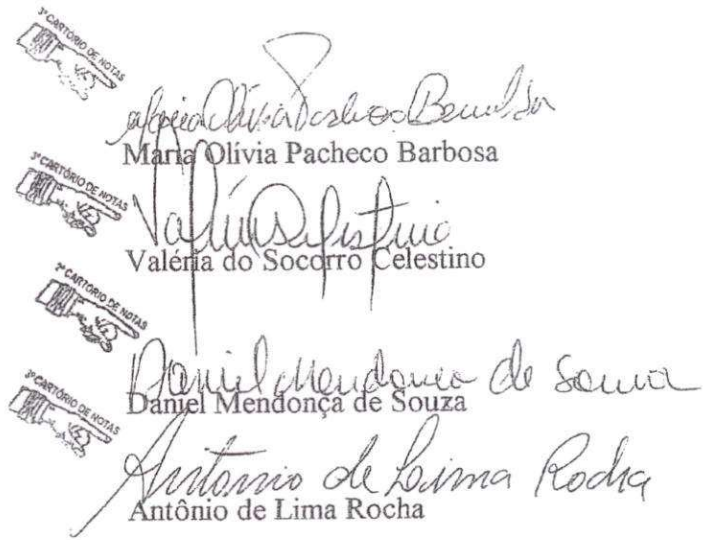 3º CARTÓRIO DE NOTAS
Maria Olívia Pacheco Barbosa
Maria Olívia Pacheco Barbosa
3º CARTÓRIO DE NOTAS
Valéria do Socorro Celestino
3º CARTÓRIO DE NOTAS
Daniel Mendonca de Souza
Daniel Mendonça de Souza
3º CARTÓRIO DE NOTAS
Antonio de Lima Rocha
Antônio de Lima Rocha